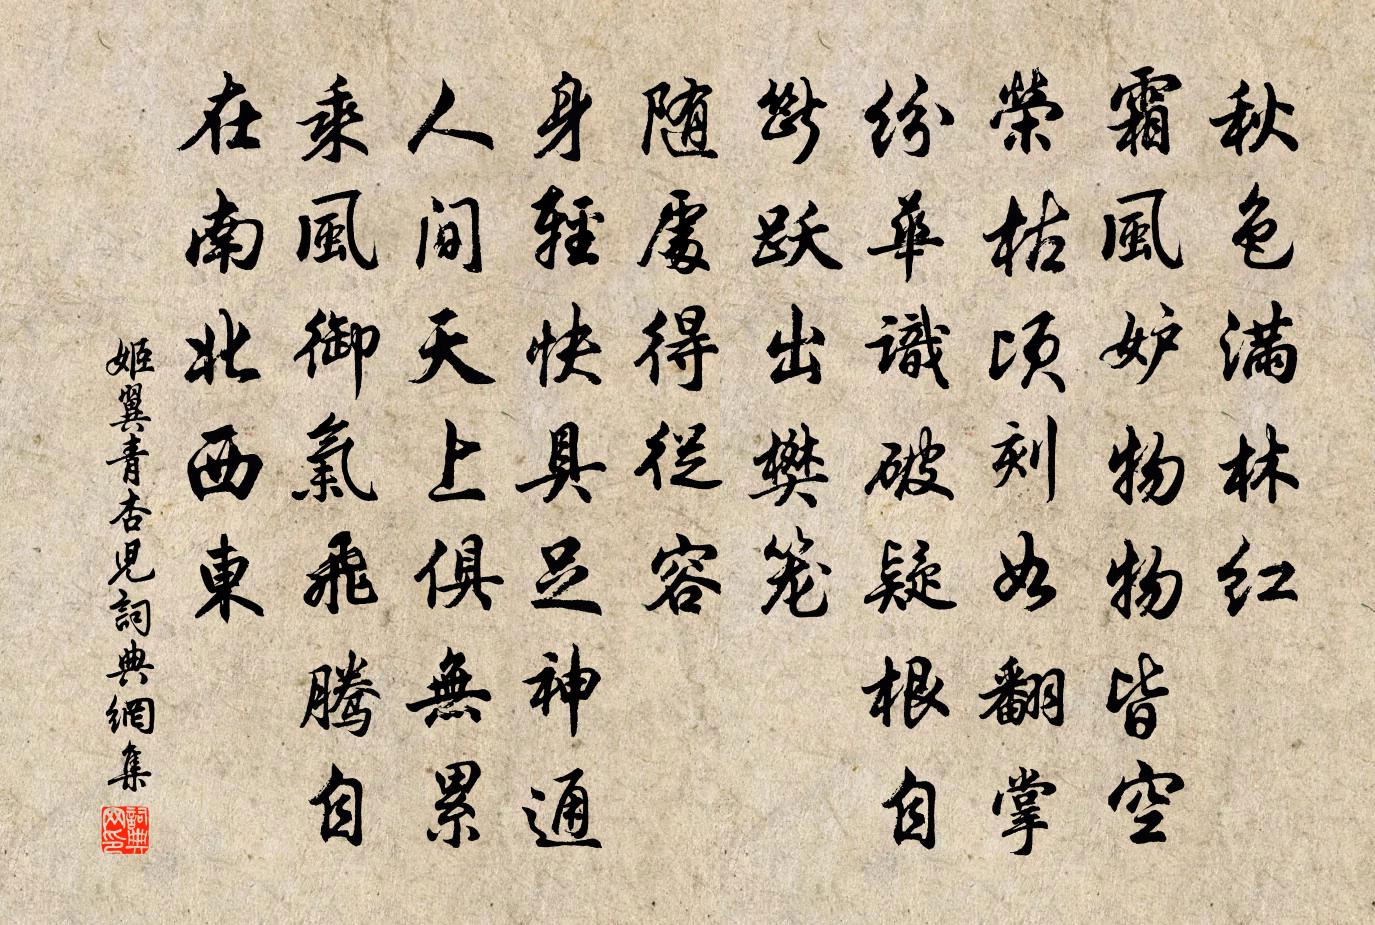 秋色满林红
霜風妒物物皆空
榮枯頃刻如翻掌
紛華識破疑根自
斷跃出樊笼
随處得從容
身輕快具足神通
人间天上俱無累
乘風御氣飛腾自
在南北西東
姬翼青杏児詞典網集
詞典网印